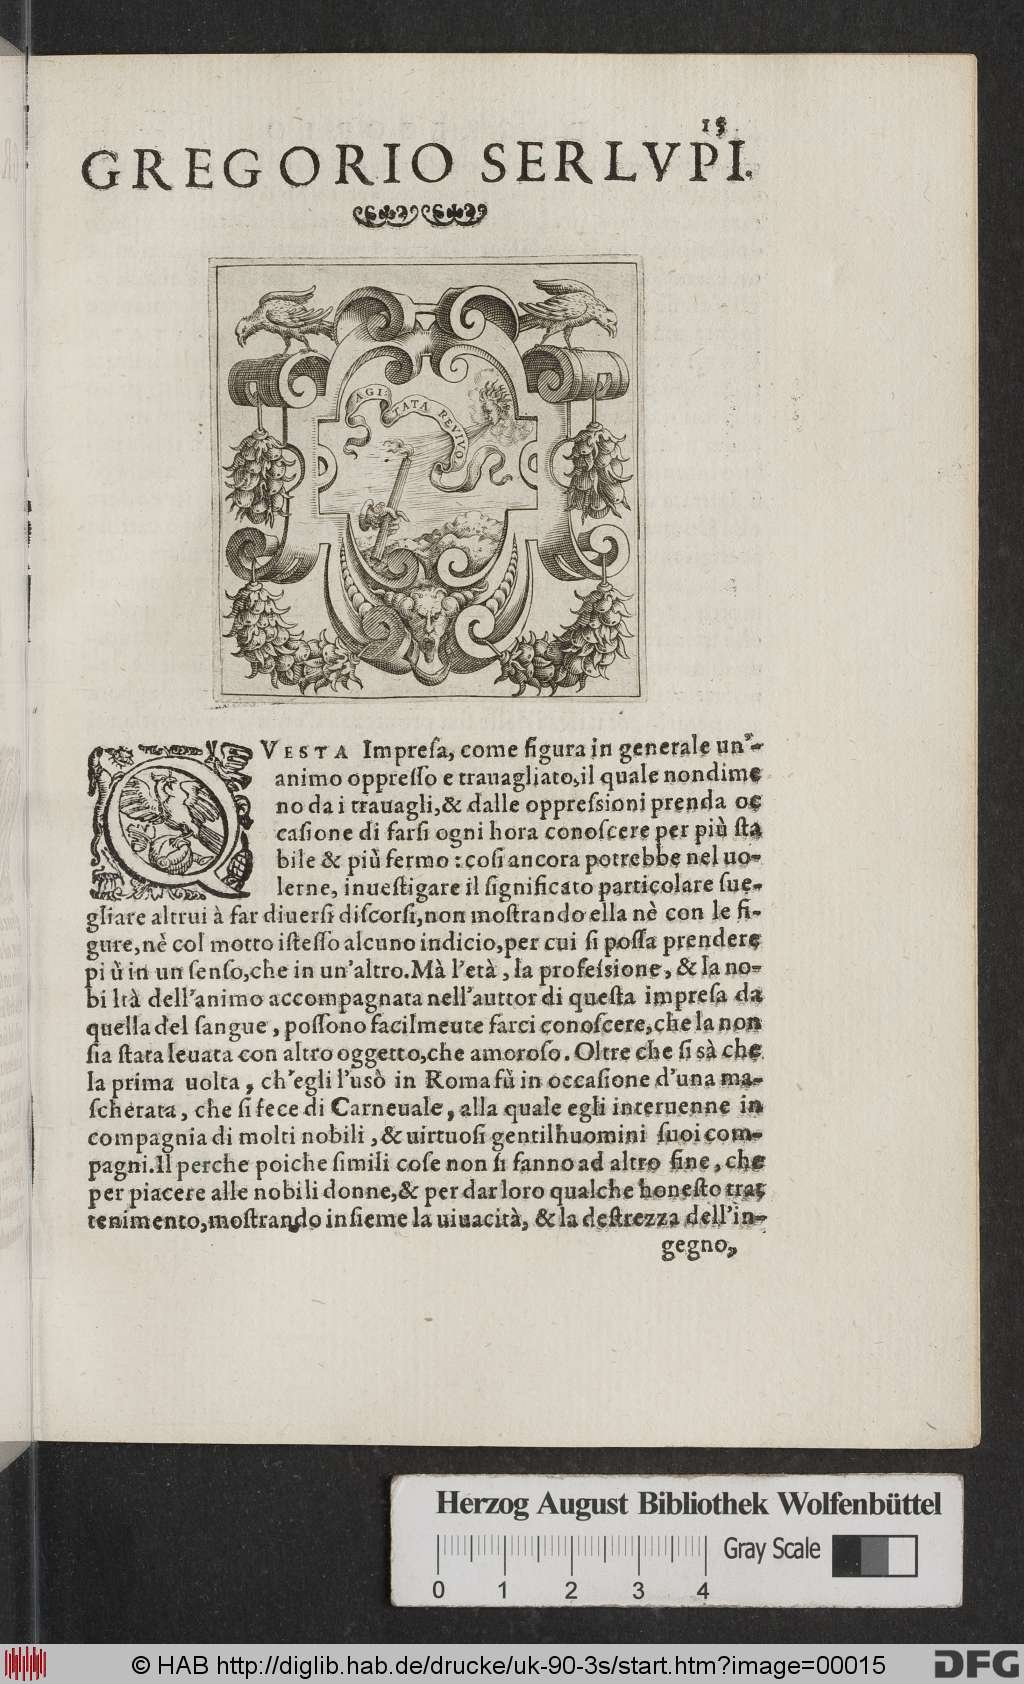 15
GREGORIO SERLVPI.
AGI
TATA REVIVO
QVESTA Impreſa, come figura in generale un'-
animo oppreſſo e trauagliato, il quale nondime
no da i trauagli, & dalle oppreſsioni prenda oc
caſione di farſi ogni hora conoſcere per più ſta
bile & più fermo : coſi ancora potrebbe nel uo-
lerne, inueſtigare il ſignificato particolare ſue-
gliare altrui à far diuerſi diſcorſi, non moſtrando ella nè con le fi-
gure, nè col motto iſteſſo alcuno indicio, per cui ſi poſſa prendere
pi ù in un ſenſo, che in un'altro. Mà l'età, la profeſsione, & la no-
bi ltà dell'animo accompagnata nell'auttor di queſta impreſa da
quella del ſangue, poſſono facilmeute farci conoſcere, che la non
ſia ſtata leuata con altro oggetto, che amoroſo. Oltre che ſi sà che
la prima uolta, ch'egli l'usò in Roma fù in occaſione d'una ma-
ſcherata, che ſi fece di Carneuale, alla quale egli interuenne in
compagnia di molti nobili, & uirtuoſi gentilhuomini ſuoi com-
pagni. Il perche poiche ſimili coſe non ſi fanno ad altro fine, che
per piacere alle nobili donne, & per dar loro qualche honeſto trat
tenimento, moſtrando inſieme la uiuacità, & la deſtrezza dell'in-
gegno,
Herzog August Bibliothek Wolfenbüttel
Gray Scale
0 1 2 3 4
© HAB http://diglib.hab.de/drucke/uk-90-3s/start.htm?image=00015
DFG